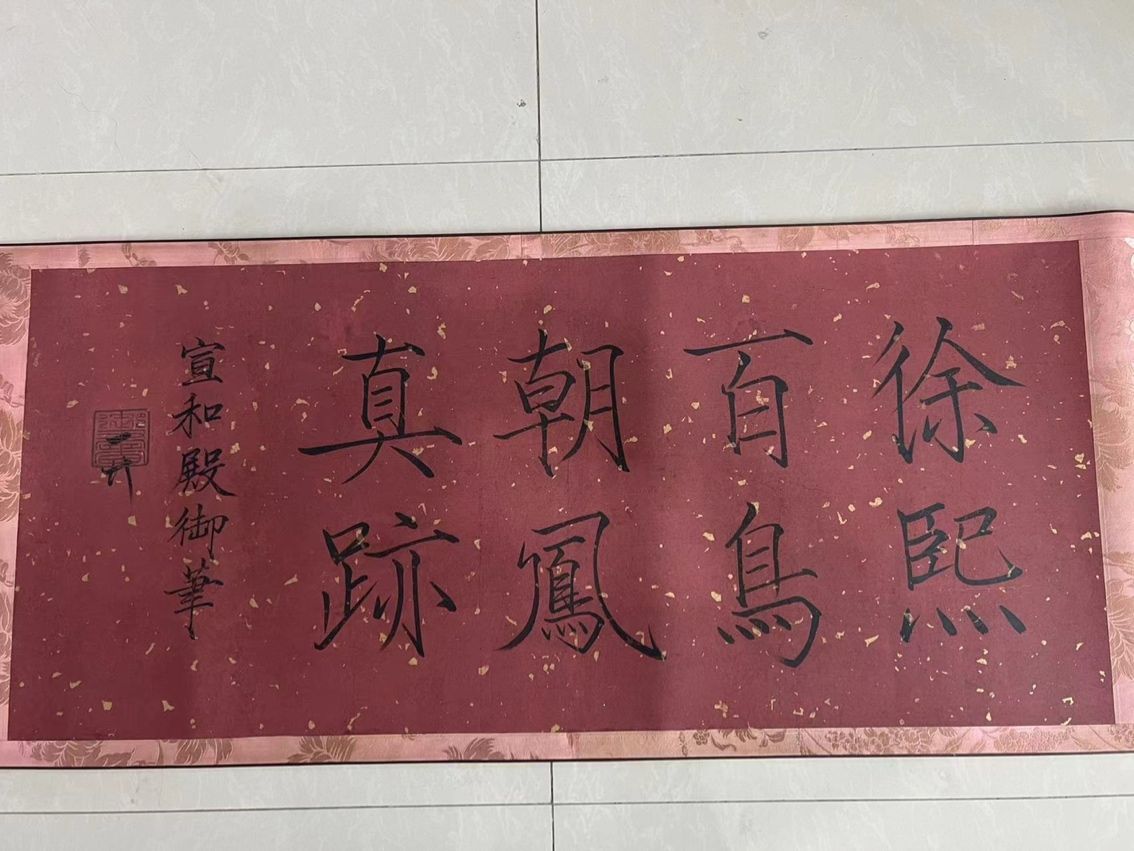 徐熙
百鳥
朝鳳
真跡
宣和殿御筆